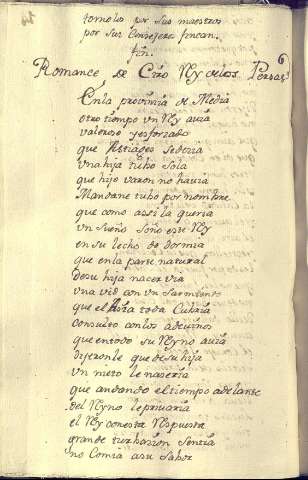 tomolo por sus maestros
por sus Consejera fincan.
fin.
6
Romance de Ciro Ry de los Persas
En la provinzia de Media
otro tiempo vn Ry auia
valeroso y esforzado
que Astiages se dezia
vna hija tubo sola
que hijo varon no hauia
Mandane tubo por nombre
que como a si la queria
vn sueño soño este Ry
en su lecho do dormia
que en la parte natural
de su hija nacer via
vna vid con vn Sarmiento
que el Asia toda Cubria
consulto con los adeuinos
que en todo su Ryno auia
dijeronle que de su hija
vn nieto le naseria
que andando el tiempo adelante
del Ryno le priuaria
el Ry con esta Rspuesta
grande turbazion Sentia
no Comia a su Sabor